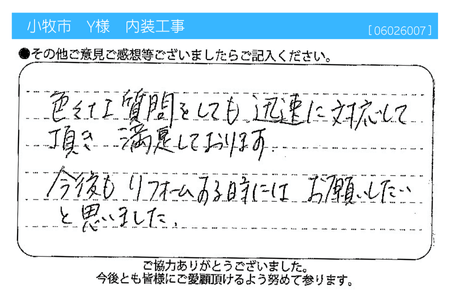 小牧市　Y様　内装工事
[06026007]
●その他ご意見ご感想等ございましたらご記入ください。
色々な質問をしても迅速に対応して
頂き 満足しております
今後も リフォームある時には お願いしたい
と思いました.
ご協力ありがとうございました。
今後とも皆様にご愛顧頂けるよう努めて参ります。